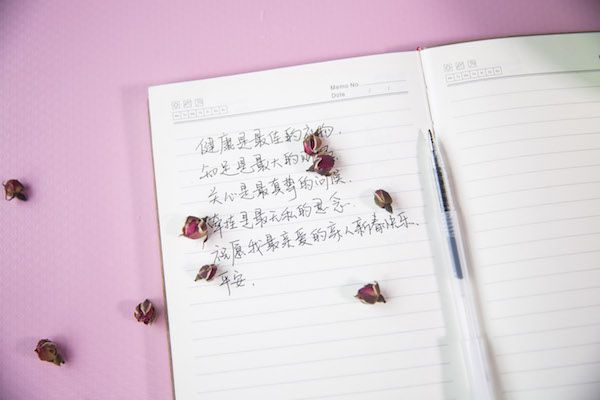 Memo No.
Date / /
健康是最佳的礼物,
知足是最大的
关心是最真挚的问候,
牵挂是最无私的思念.
祝愿我最亲爱的亲人新春快乐,
平安.